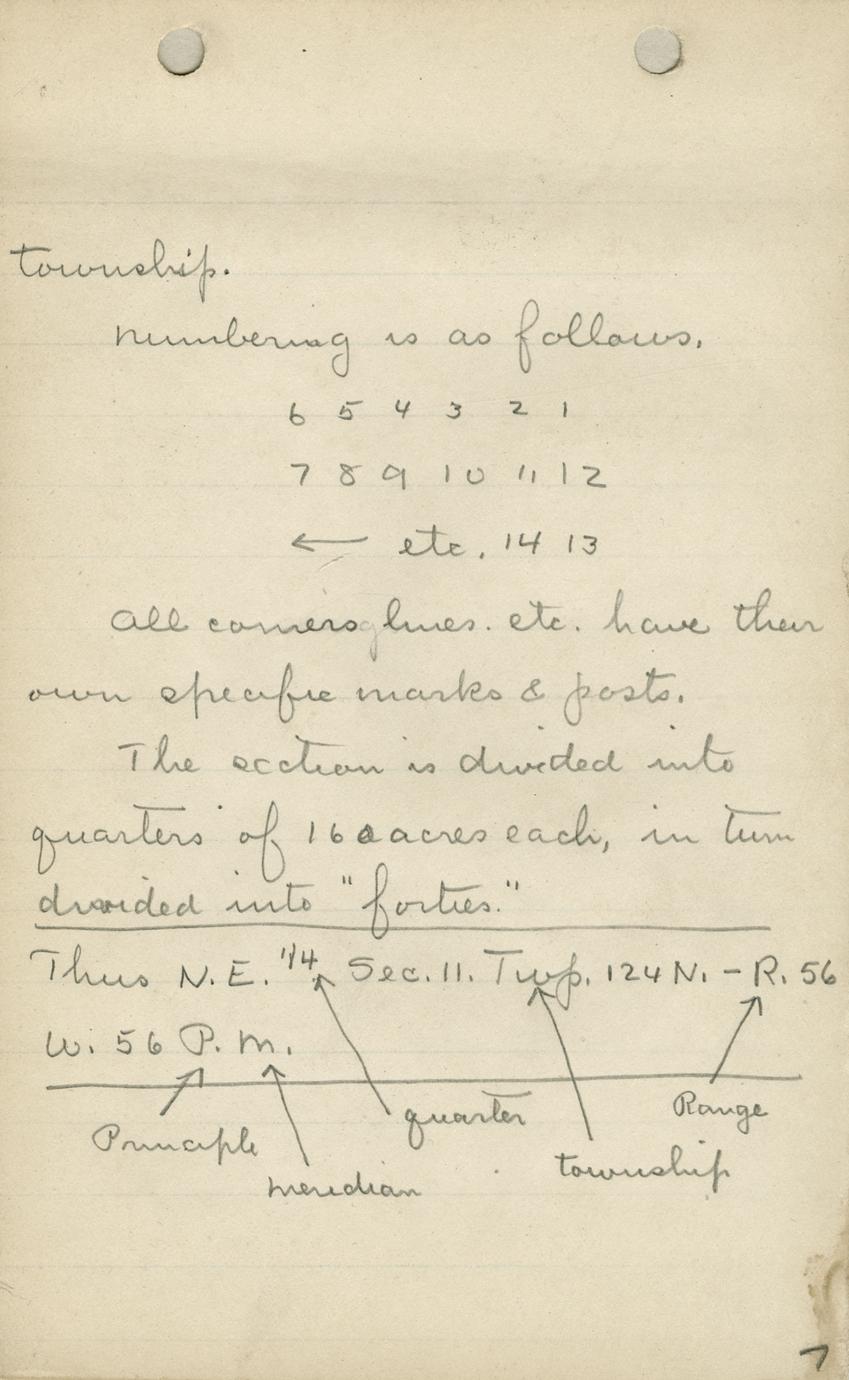 township.
Numbering is as follows.
6 5 4 3 2 1
7 8 9 10 11 12
← etc. 14 13
All corners, lines. etc. have their
own specific marks & posts.
The section is divided into
quarters of 160 acres each, in turn
divided into "forties."
Thus N.E. 1/4, Sec. 11. Twp. 124 N. – R. 56
W. 56 P. M.
Principle
meridian
quarter
township
Range
7